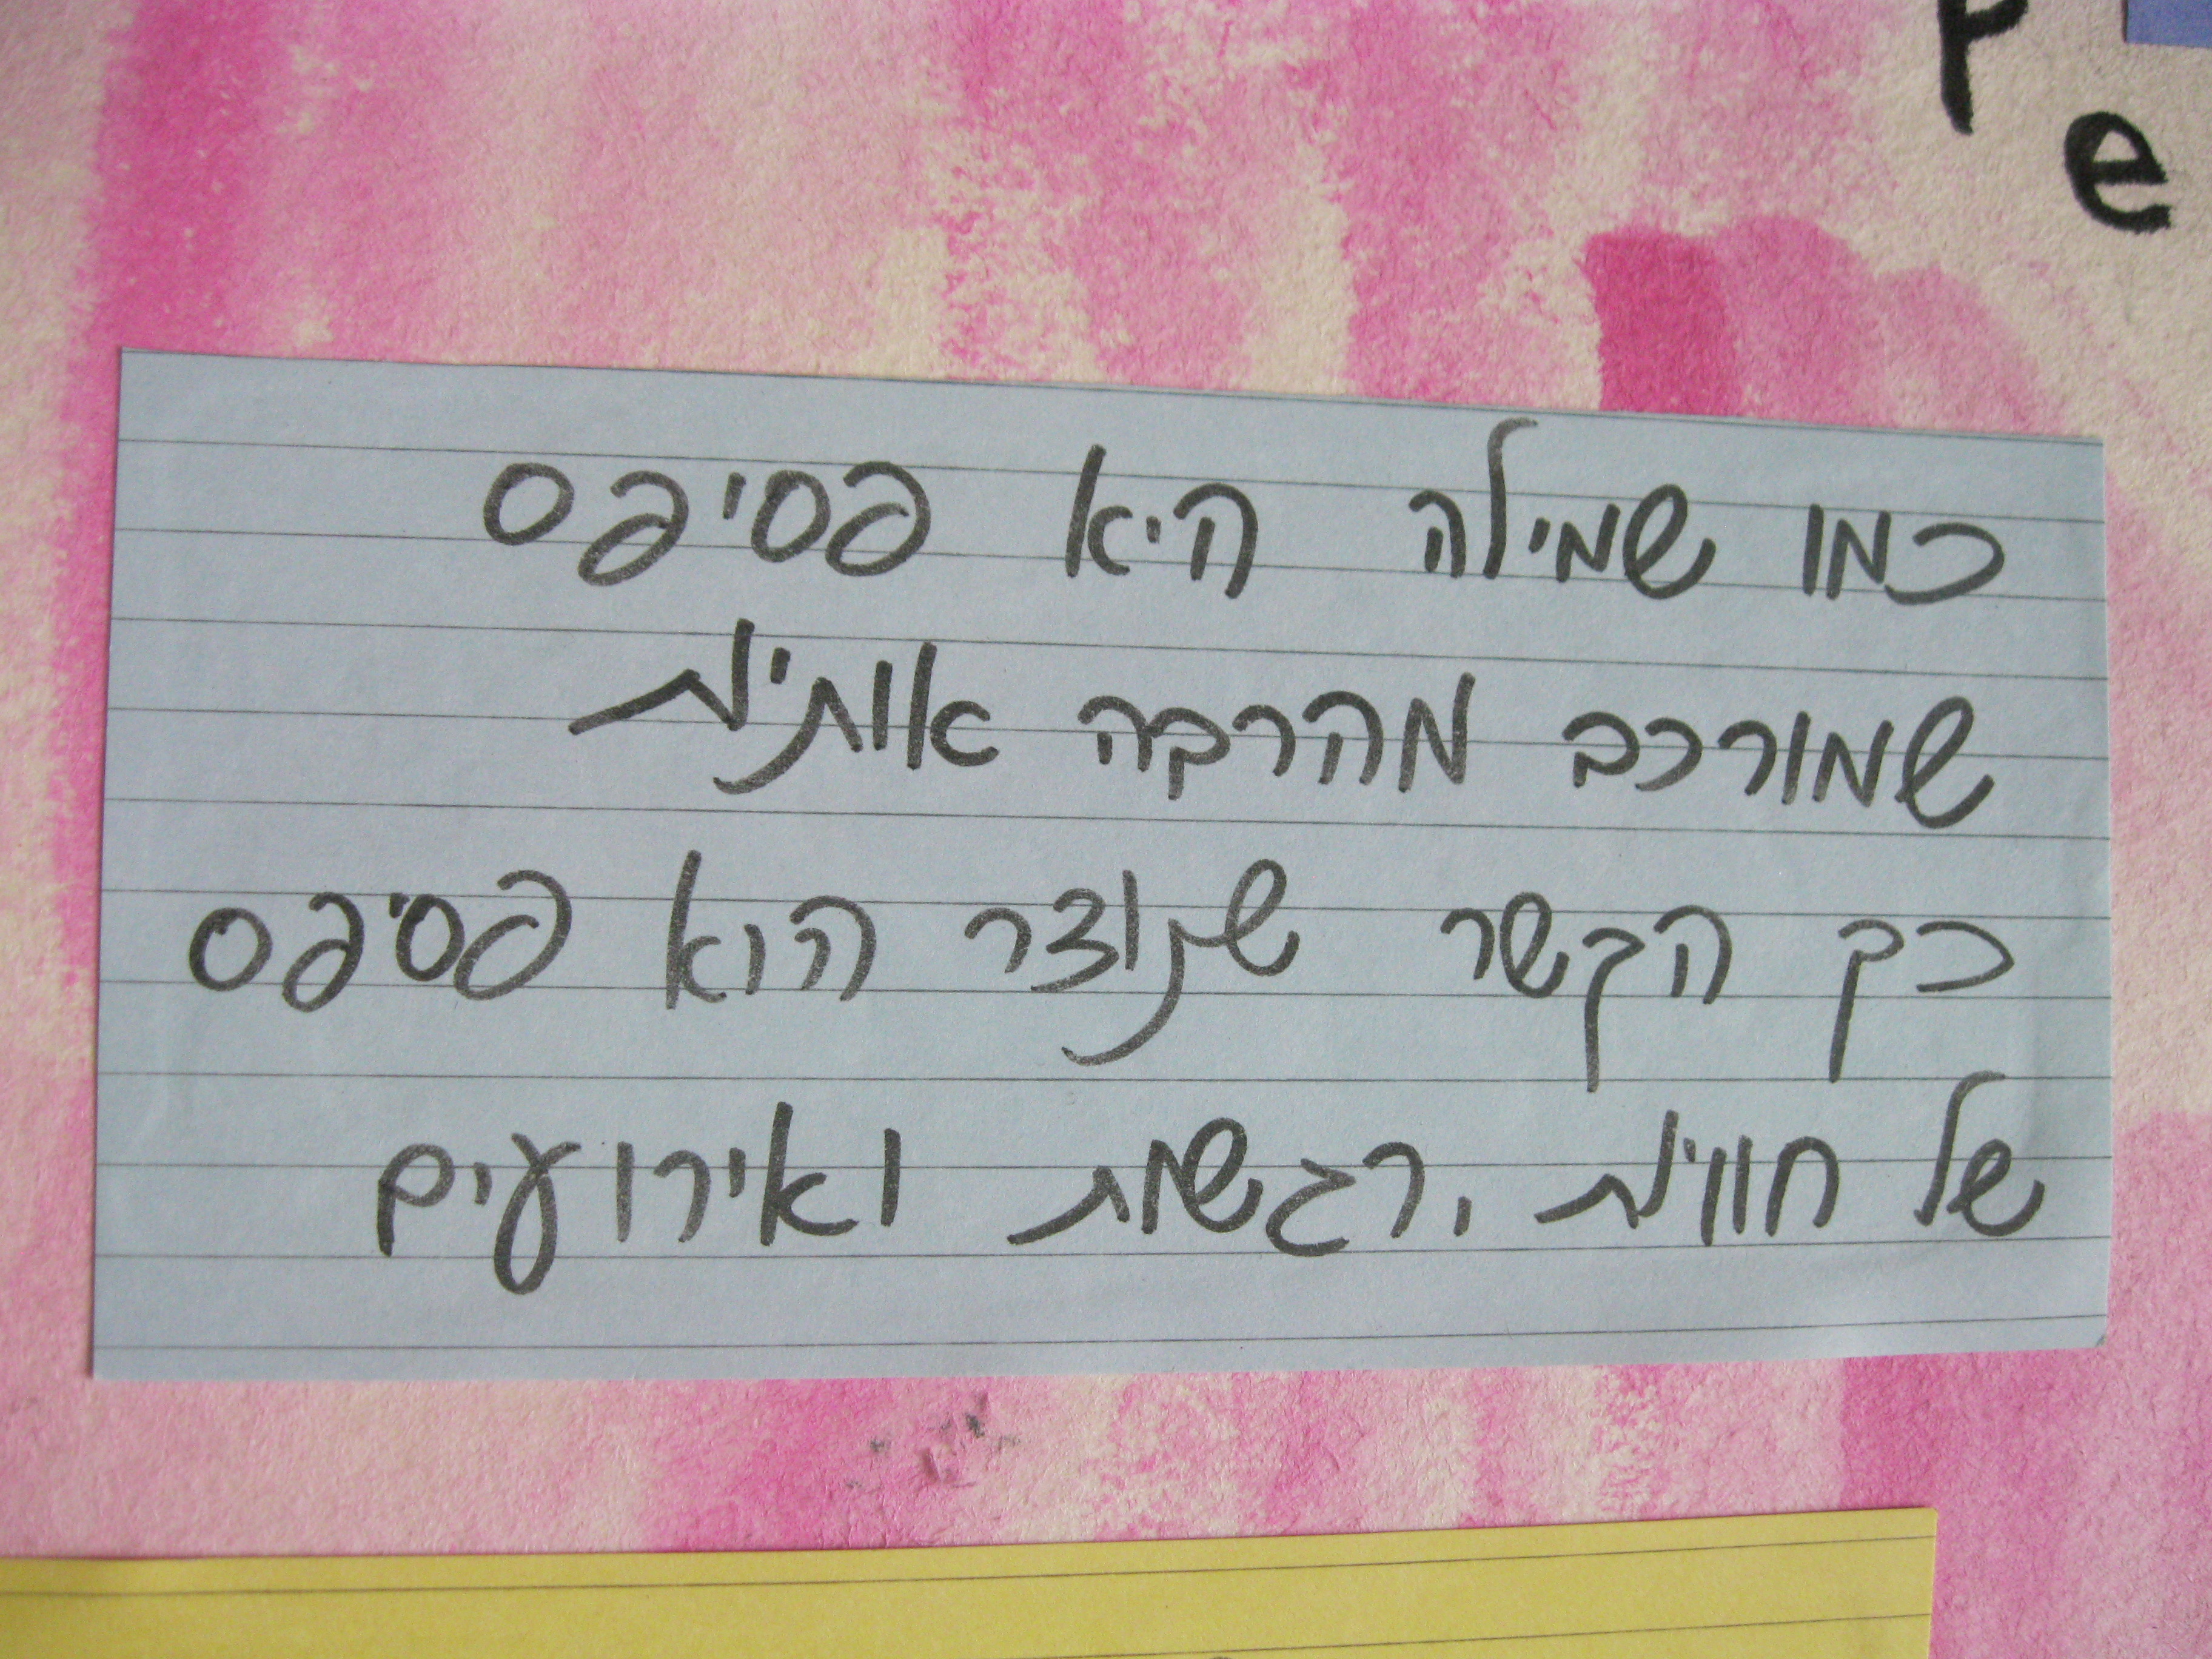 p
e
כמו שמילה היא פסיפס
שמורכב מהרבה אותיות
כך הקשר שנוצר הוא פסיפס
של חוויות, רגשות ואירועים